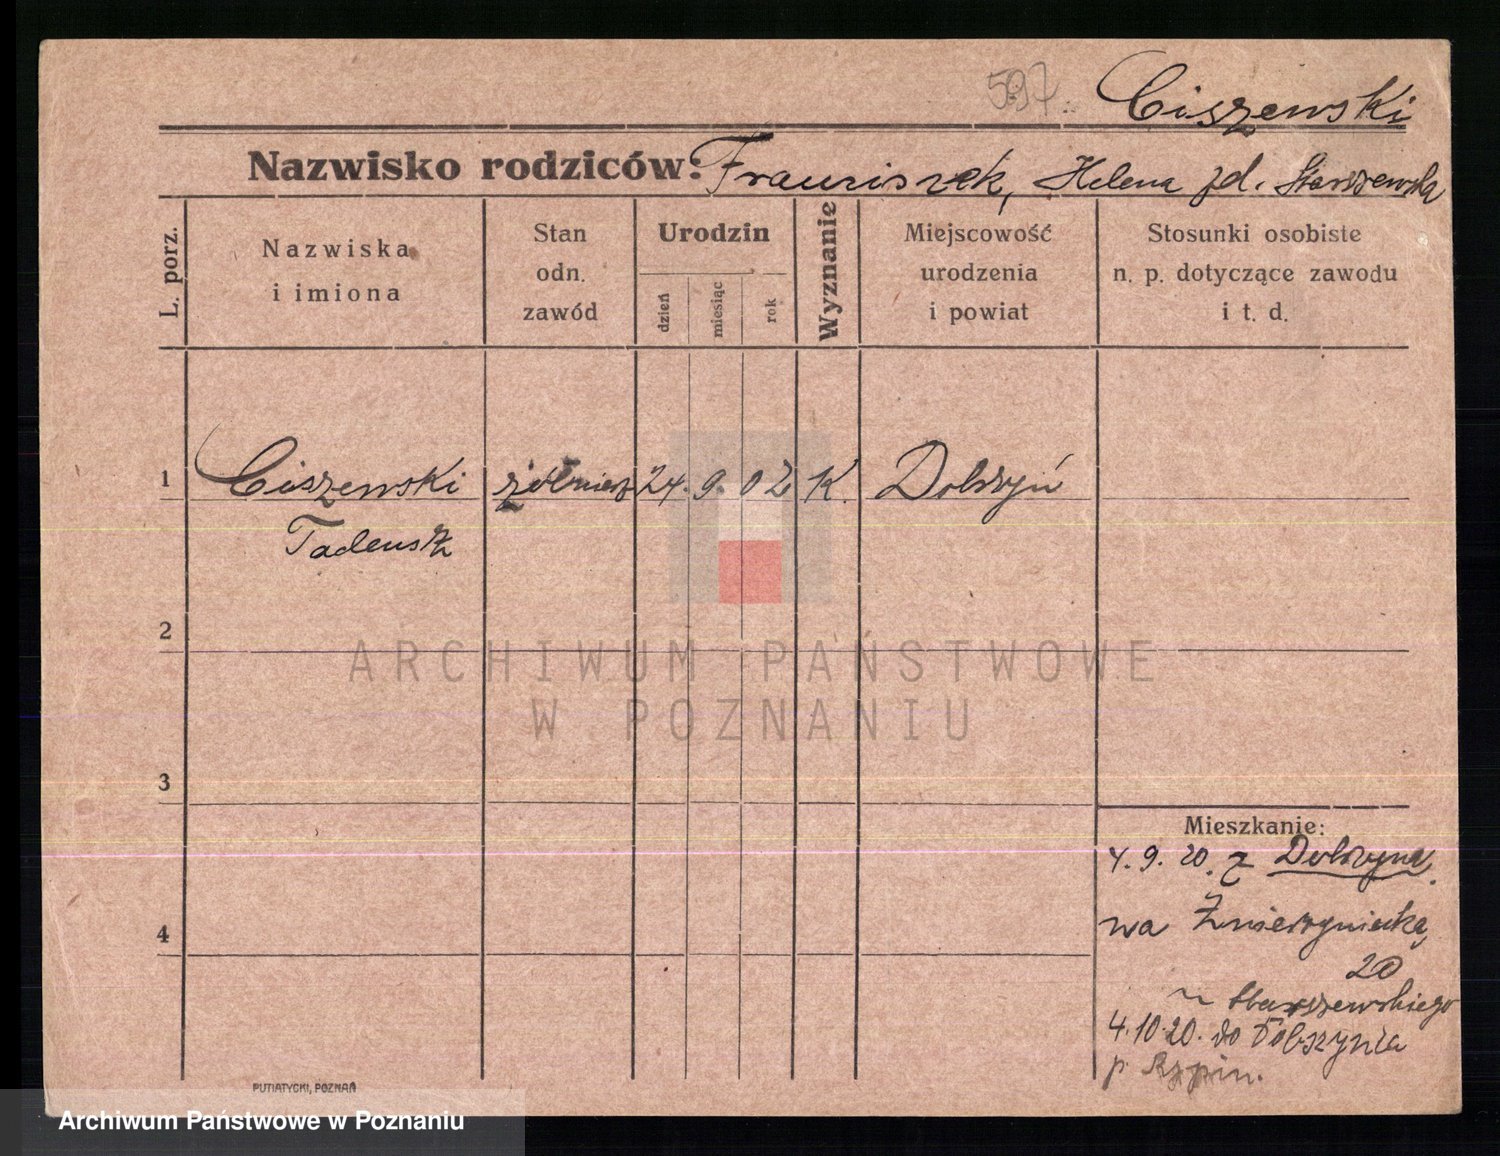 597.
Ciszewski
Nazwisko rodziców: Franciszek, Helena zd. Starszewska
L. porz.
Nazwiska
i imiona
Stan
odn.
zawód
Urodzin
dzień
miesiąc
rok
Wyznanie
Miejscowość
urodzenia
i powiat
Stosunki osobiste
n. p. dotyczące zawodu
i t. d.
1 Ciszewski żołnierz 24. 9. 02 K. Dobrzyń
Tadeusz
2
ARCHIWUM PAŃSTWOWE
W POZNANIU
3
4
Mieszkanie:
4. 9. 20. z Dobrzyna.
na Zwierzyniecką
20
u Starszewskiego
4.10.20. do Dobrzynia
p. Rypin.
PUTIATYCKI, POZNAŃ
Archiwum Państwowe w Poznaniu